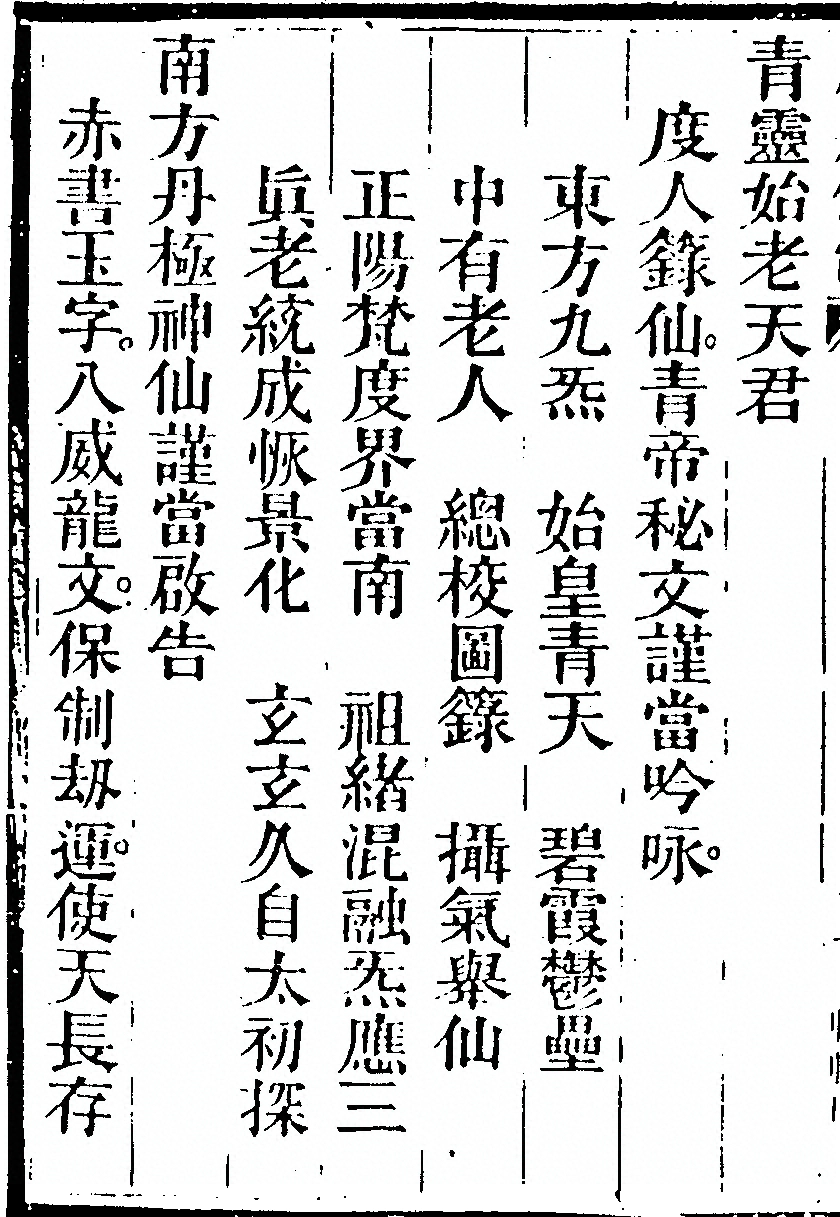 青靈始老天君
度人籙仙。青帝秘文謹當吟咏。
東方九炁　始皇青天　碧霞鬱壘
中有老人　總校圖籙　攝氣舉仙
正陽梵度界當南　祖緒混融炁應三
眞老統成恢景化　玄玄久自太初探
南方丹極神仙謹當啟告
赤書玉字。八威龍文。保制劫運。使天長存